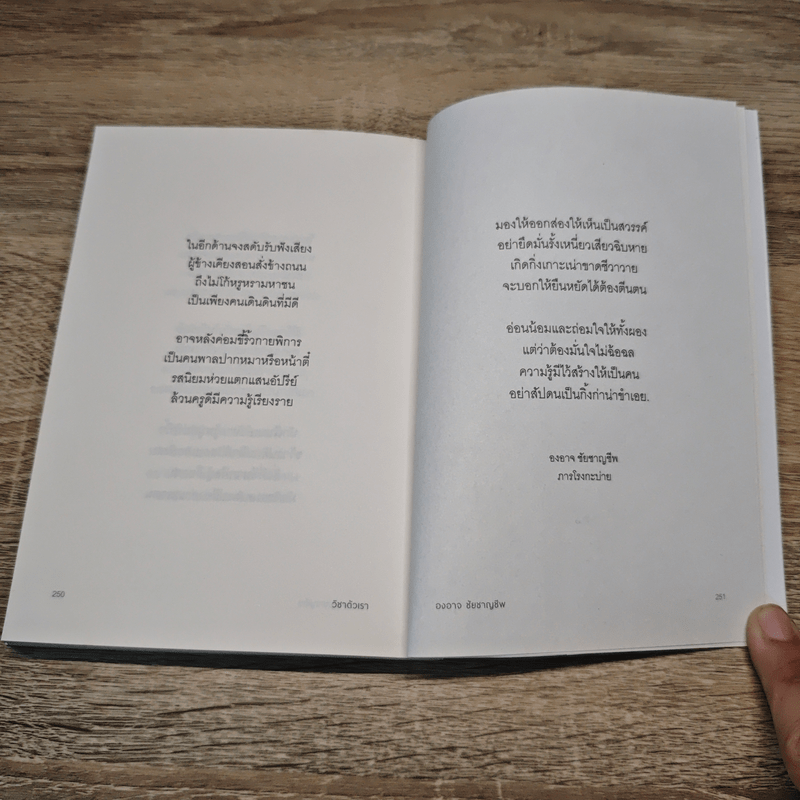 ในอีกด้านจงสดับรับฟังเสียง
ผู้ข้างเคียงสอนสั่งข้างถนน
ถึงไม่โก้หรูหรามหาชน
เป็นเพียงคนเดินดินที่มีดี
อาจหลังค่อมขี้ริ้วกายพิการ
เป็นคนพาลปากหมาหรือหน้าตี๋
รสนิยมห่วยแตกแสนอัปรีย์
ล้วนครูดีมีความรู้เรียงราย
250
วิชาตัวเรา
มองให้ออกส่องให้เห็นเป็นสวรรค์
อย่ายึดมั่นรั้งเหนี่ยวเสียวฉิบหาย
เกิดกิ่งเกาะเน่าขาดชีวาวาย
จะบอกให้ยืนหยัดได้ต้องตีนตน
อ่อนน้อมและถ่อมใจให้ทั้งผอง
แต่ว่าต้องมั่นใจไม่ฉ้อฉล
ความรู้มีไว้สร้างให้เป็นคน
อย่าสัปดนเป็นกิ้งก่าน่าขำเอย.
องอาจ ชัยชาญชีพ
ภารโรงกะบ่าย
องอาจ ชัยชาญชีพ
251